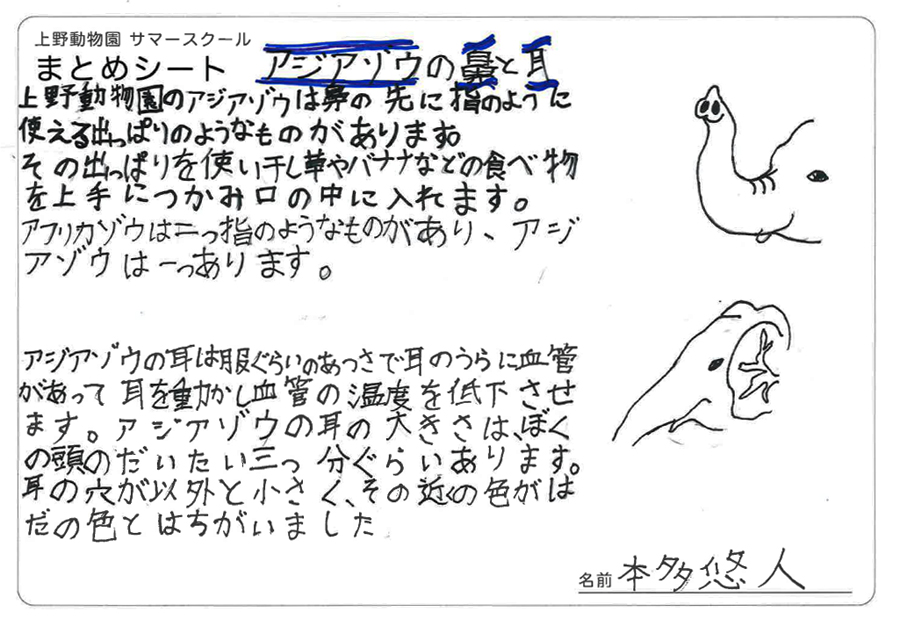 上野動物園 サマースクール
まとめシート アジアゾウの鼻と耳
上野動物園のアジアゾウは鼻の先に指のように
使える出っぱりのようなものがあります。
その出っぱりを使い干し草やバナナなどの食べ物
を上手につかみ口の中に入れます。
アフリカゾウは二つ指のようなものがあり、アジ
アゾウは一つあります。
アジアゾウの耳は服ぐらいのあつさで耳のうらに血管
があって耳を動かし血管の温度を低下させ
ます。アジアゾウの耳の大きさは、ぼく
の頭のだいたい三つ分ぐらいあります。
耳の穴が以外と小さく、その近くの色がは
だの色とはちがいました
名前 本多悠人